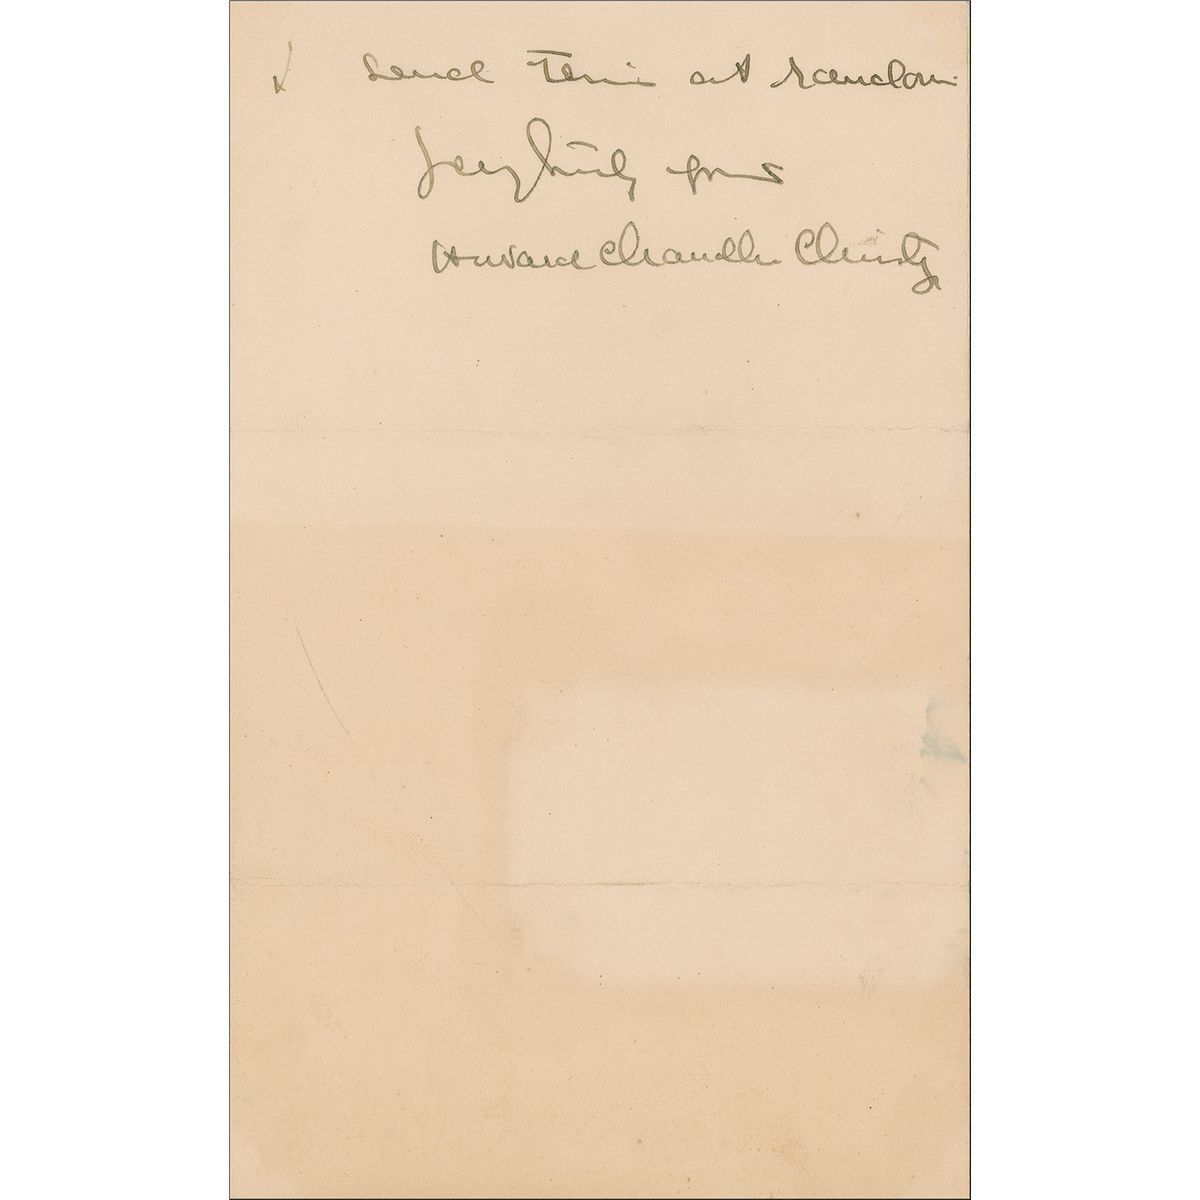 send them at random
Very truly yours
Howard Chandler Christy